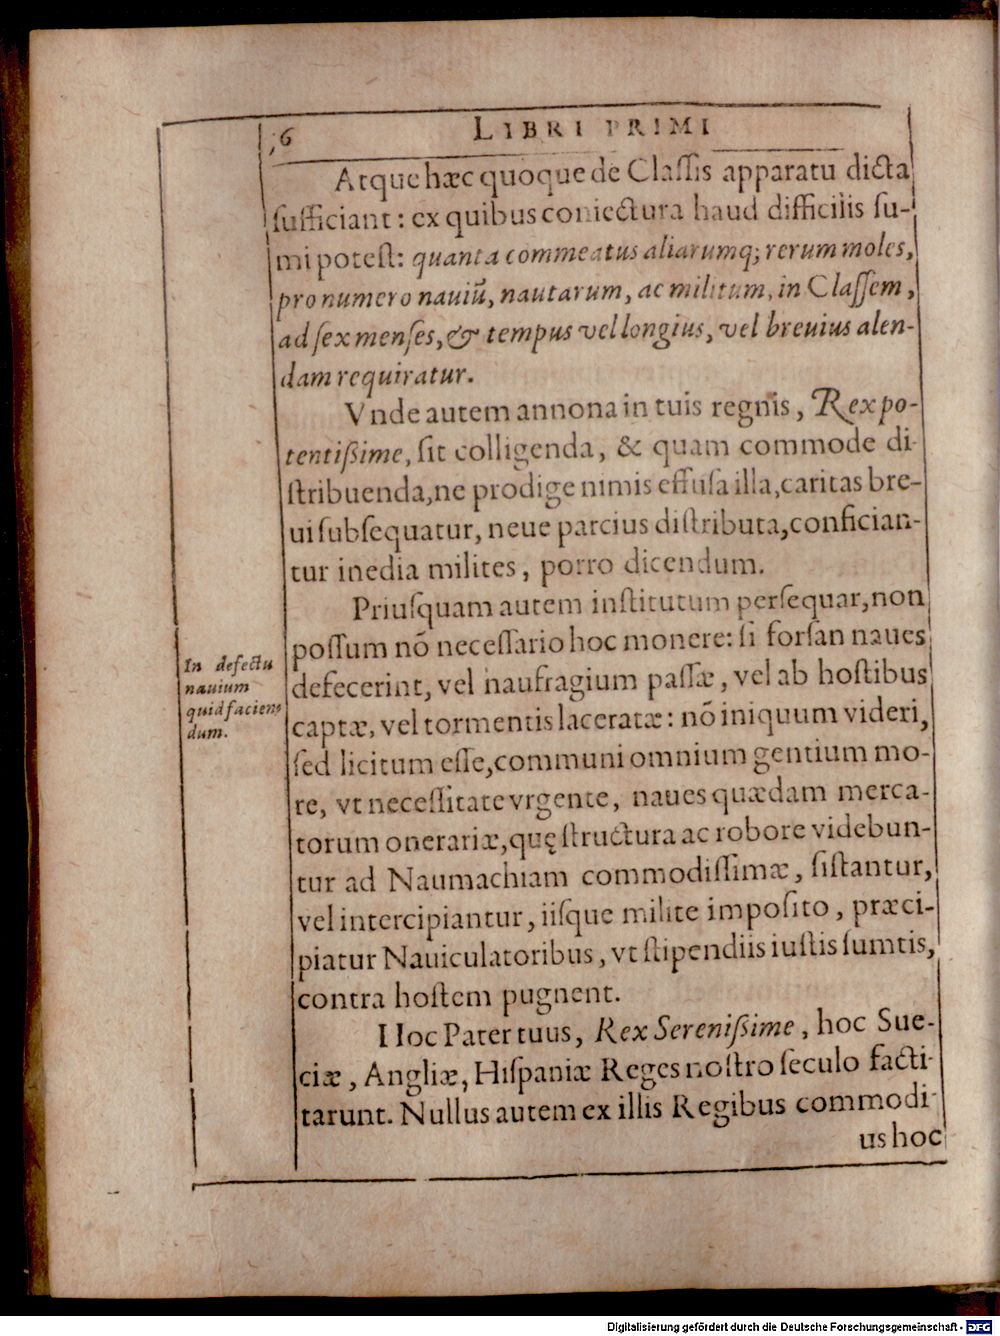 ;6 LIBRI PRIMI
Atque hæc quoque de Claſſis apparatu dicta
ſufficiant: ex quibus coniectura haud difficilis ſu-
mi poteſt: quanta commeatus aliarumq; rerum moles,
pro numero nauiũ, nautarum, ac militum, in Claſſem,
ad ſex menſes, & tempus vel longius, vel breuius alen-
dam requiratur.
Vnde autem annona in tuis regnis, Rex po-
tentißime, ſit colligenda, & quam commode di-
ſtribuenda, ne prodige nimis effuſa illa, caritas bre-
ui ſubſequatur, neue parcius diſtributa, confician-
tur inedia milites, porro dicendum.
Priuſquam autem inſtitutum perſequar, non
poſſum nõ neceſſario hoc monere: ſi forſan naues
In defectu
nauium
quid facien-
dum.
defecerint, vel naufragium paſſæ, vel ab hoſtibus
captæ, vel tormentis laceratæ: nõ iniquum videri,
ſed licitum eſſe, communi omnium gentium mo-
re, vt neceſſitate vrgente, naues quædam merca-
torum onerariæ, quę ſtructura ac robore videbun-
tur ad Naumachiam commodiſſimæ, ſiſtantur,
vel intercipiantur, iiſque milite impoſito, præci-
piatur Nauiculatoribus, vt ſtipendiis iuſtis ſumtis,
contra hoſtem pugnent.
Hoc Pater tuus, Rex Serenißime, hoc Sue-
ciæ, Angliæ, Hiſpaniæ Reges noſtro ſeculo facti-
tarunt. Nullus autem ex illis Regibus commodi-
us hoc
Digitalisierung gefördert durch die Deutsche Forschungsgemeinschaft - DFG